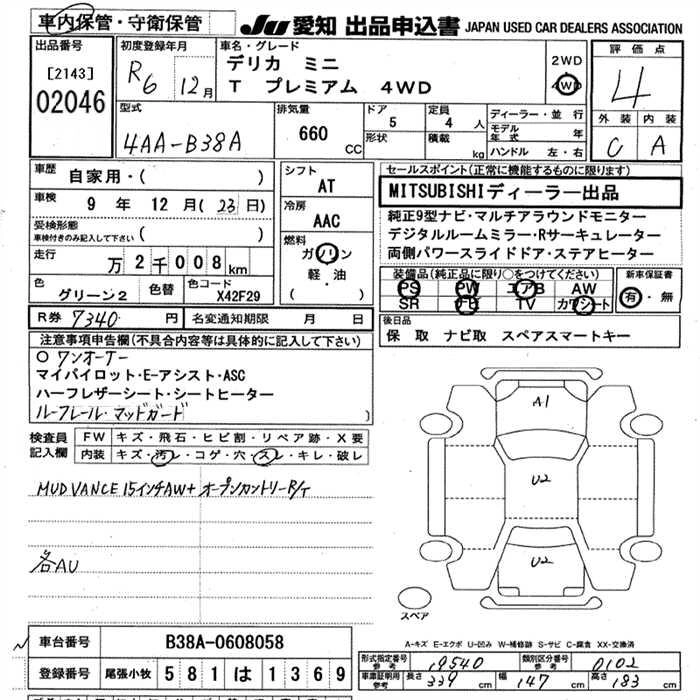 車内保管・守衛保管
JU 愛知 出品申込書 JAPAN USED CAR DEALERS ASSOCIATION
出品番号
[2143]
02046
初度登録年月
R6 12月
車名・グレード
デリカ ミニ
T プレミアム 4WD
2WD
4WD
評価点
4
外装 内装
C A
型式
4AA-B38A
排気量
660 CC
ドア
5
形状
定員
4 人
積載 kg
ディーラー・並行
モデル年式 年
ハンドル 左・右
車歴 自家用・( )
車検 9 年 12 月(23日)
受検形態
車検付きのみ記入して下さい ( )
走行 万 2 千 008 km
色 グリーン2
色替
色コード X42F29
シフト
AT
冷房
AAC
燃料
ガソリン
軽・油
( )
セールスポイント(正常に機能するものに限ります)
MITSUBISHIディーラー出品
純正9型ナビ・マルチアラウンドモニター
デジタルルームミラー・Rサーキュレーター
両側パワースライドドア・ステアヒーター
装備品(純正品に限り○をつけてください)
PS PW エアB AW
SR ナビ TV カワシート
新車保証書
有・無
R券 7340 円 名変通知期限 月 日
後日品
保 取 ナビ取 スペアスマートキー
注意事項申告欄(不具合内容等は具体的に記入して下さい)
○ワンオーナー
マイパイロット・E-アシスト・ASC
ハーフレザーシート・シートヒーター
ルーフレール・マッドガード )
検査員記入欄
FW キズ・飛石・ヒビ割・リペア跡・X要
内装 キズ・汚レ・コゲ・穴・スレ・キレ・破レ
MUD VANCE 15インチAW+オープンカントリーR/T
各AU
A1
U2
U2
スペア
A-キズ E-エクボ U-凹み W-補修跡 S-サビ C-腐食 XX-交換済
車台番号 B38A-0608058
登録番号 尾張小牧 581 は 1369
型式指定番号 参考 19540
類別区分番号 参考 0102
車庫証明用 参考 長さ 339 cm 幅 147 cm 高さ 183 cm